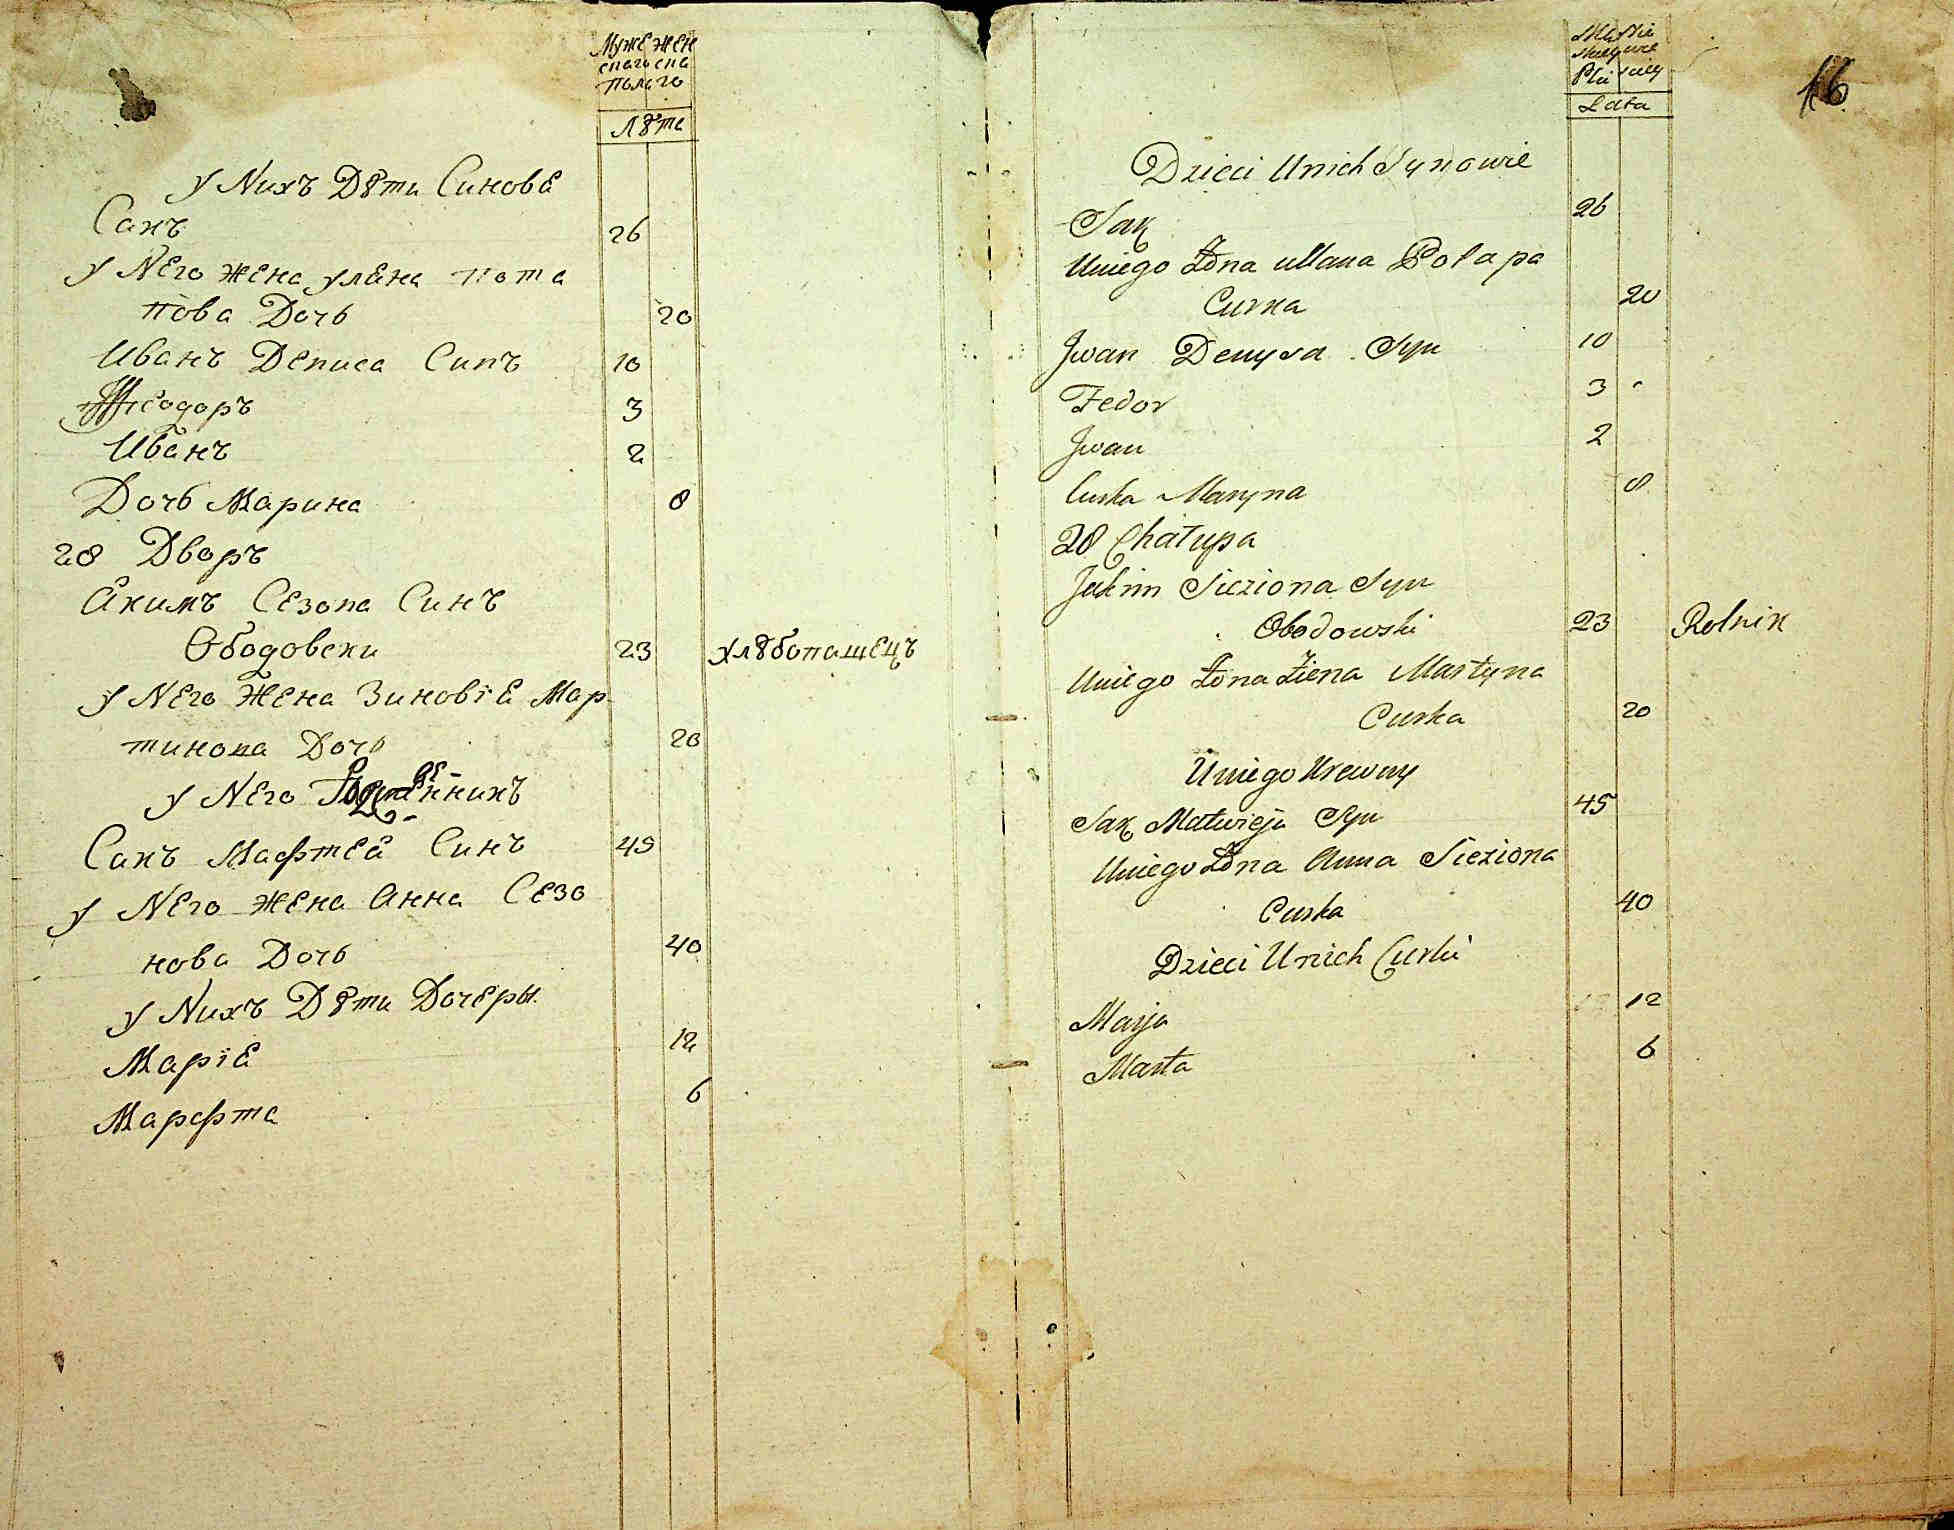 Муже Жен
скаго ска
Пола го
Лѣта
У Nихъ Дѣти Синовѐ
Сакъ 26
У Nего жена улѐна пота
пова Дочь 20
Иванъ Дениса Синъ 10
Ѳеодоръ 3
Иванъ 2
Дочь Марина 8
28 Дворъ
Акимъ Сезона Синъ
Ободовски 23 хлѣбопашецъ
У Nего Жена Зиновіѐ Мар
тинова Дочь 20
У Nего
Сакъ Мафтей Синъ 45
У Nего жена Анна Сезо
нова Дочь 40
У Nихъ Дѣти Дочеры
Маріѐ 12
Марфта 6
16
Lata
Dzieci Unich Synowie
Sak 26
Uniego Żona Ulana Potapa
Curka 20
Jwan Denysa Syn 10
Fedor 3
Jwan 2
Curka Maryna 8
28 Chałupa
Jakim Sieziona Syn
Obodowski 23 Rolnik
Uniego Żona Ziena Martyna
Curka 20
Uniego Krewny
Sak Matwieja Syn 45
Uniego Żona Anna Sieziona
Curka 40
Dzieci Unich Curki
Marja 12
Marta 6